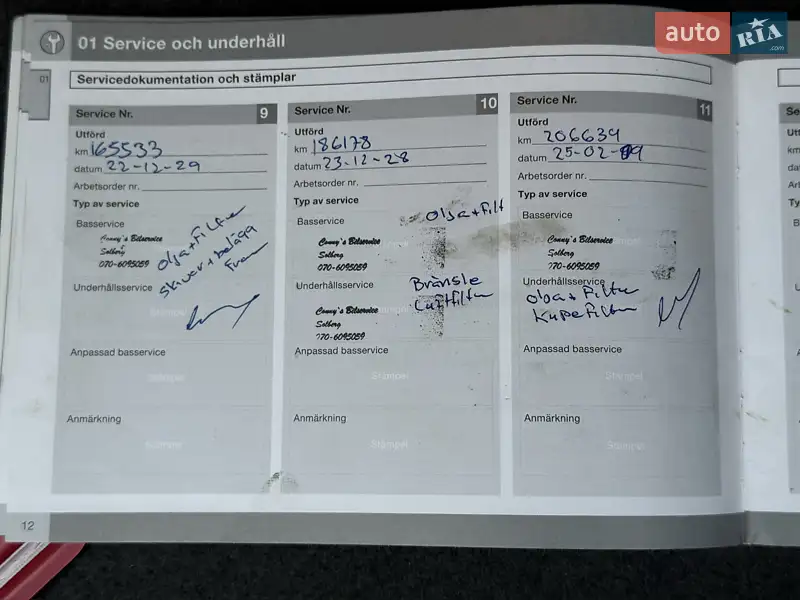 auto RIA .com
01 Service och underhåll
01
Servicedokumentation och stämplar
Service Nr. 9
Utförd
km 165533
datum 22-12-29
Arbetsorder nr.
Typ av service
Basservice
Conny's Bilservice
Solberg
070-6095059
Olja+Filter
skivor+belägg
Fram
Underhållsservice
Stämpel
Anpassad basservice
Stämpel
Anmärkning
Stämpel
Service Nr. 10
Utförd
km 186178
datum 23-12-28
Arbetsorder nr.
Typ av service
Basservice
Olja+Filt
Conny's Bilservice
Solberg
070-6095059
Underhållsservice
Bränsle
Luftfilter
Conny's Bilservice
Solberg
070-6095059
Anpassad basservice
Stämpel
Anmärkning
Stämpel
Service Nr. 11
Utförd
km 206639
datum 25-02-
Arbetsorder nr.
Typ av service
Basservice
Conny's Bilservice
Solberg
770-6095059
Underhållsservice
olja + Filter
KupeFilter
Anpassad basservice
Stämpel
Anmärkning
Stämpel
12